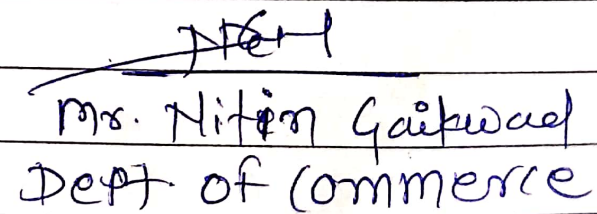 Mr. Nitin Gaikwad
Dept. of Commerce